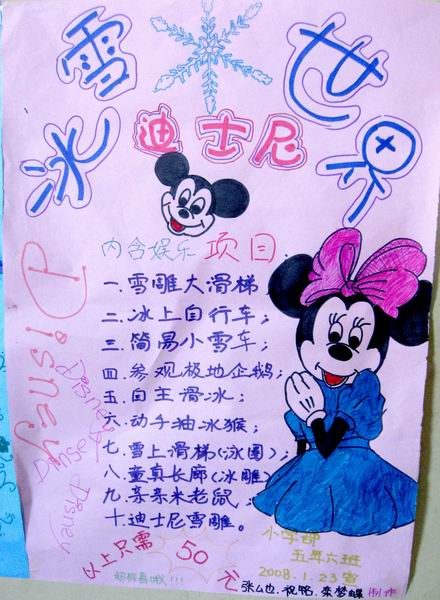 冰雪世界
迪士尼
内含娱乐项目
一.雪雕大滑梯
二.冰上自行车;
三.简易小雪车;
四.参观极地企鹅;
五.自主滑冰;
六.动手抽冰猴;
七.雪上滑梯(泳圈);
八.童真长廊(冰雕)
九.亲亲米老鼠;
十.迪士尼雪雕。
以上只需50元
超惊喜哦!!!
Disney
Disney
Disney
小学部
五年六班
2008.1.23
制作